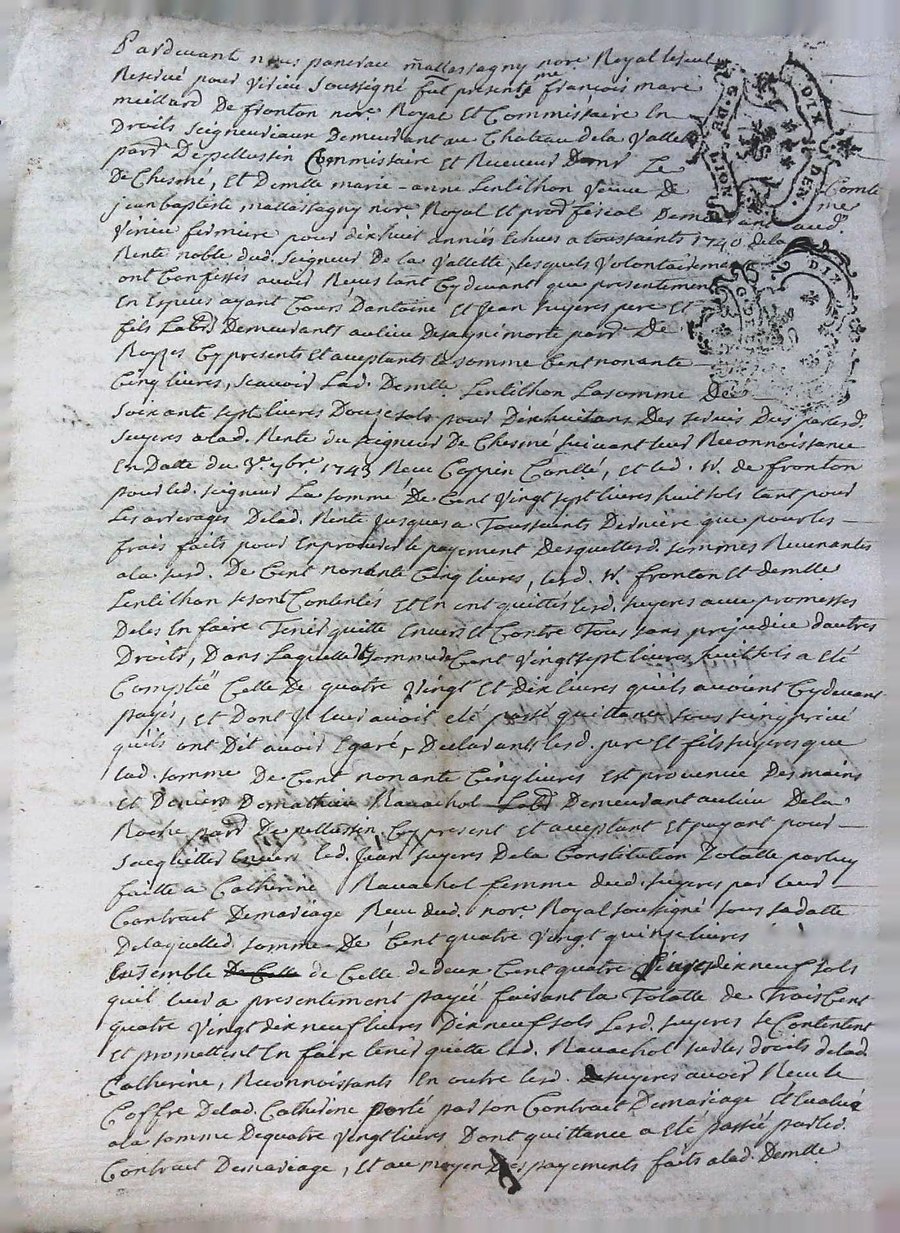 Pardevant nous panerau mallassagny nore Royal
Reservé pour Virieu soussigné fut present me francois marc
meillard De fronton nore Royal Et Commissaire En
Droits seigneuriaux Demeurant au Chateau dela Vallette
parr Depellussin Commissaire et Receveur De mr Le Comte
De Chesmé, Et Demlle marie-anne Lentithon veuve De me
jean baptiste mallassagny nore Royal Et procr fiscal Demeurant aud.
Virieu fermiere pour dixhuit années Echues a toussaints 1740 dela
Rente noble dud. seigneur De la Vallette, lesquels Volontairement
ont Confessés avoir Reçus tant Cydevant que presentement
En Especes ayant Cours D'antoine Et Jean suyeres pere Et
fils Labrs Demeurants au lieu De parr De
Royzes Cy presents Et acceptants la somme Cent nonante
Cinq livres, scavoir Lad. Demlle Lentithon La somme De
soixante sept livres Douze sols pour Dixhuit ans Des servis Dus par lesd.
suyeres a lad. Rente du seigneur De Chesmé suivant leur Reconnoissance
En Datte du 3e 7bre 1743 Reçu Coppin Conlle, et led. sr. de fronton
pour led. seigneur La somme De Cent Vingt sept livres huit sols tant pour
Les arrerages Delad. Rente jusques a Toussaints Derniere que pour les
frais faits pour En procurer le payement Desquelles d. sommes Revenantes
a la susd. De Cent nonante Cinq livres, lesd. sr. fronton Et demlle
Lentithon se sont Contentés Et En ont quittés lesd. suyeres avec promesses
De les En faire Tenir quitte Envers Et Contre Tous sans prejudice d'autres
Droits, Dans Laquelle somme de Cent Vingt sept livres huit sols a Eté
Comptée Celle De quatre Vingt Et Dix livres qu'ils avoient Cydevant
payés, et Dont Il leur avoit eté passé quittance sous seing privé
qu'ils ont Dit avoir Egaré, Declarants lesd. pere Et fils suyeres que
lad. somme De Cent nonante Cinq livres Est provenue Des mains
Et Deniers De mathieu Ravachol Labr Demeurant au lieu De la
Roche parr De pellussin Cy present Et acceptant Et payant pour
s'acquitter Envers led. Jean suyeres De la Constitution Dotalle par luy
faitte a Catherine Ravachol femme dud. suyeres par leur
Contrat De mariage Reçu dud. nore Royal soussigné sous sa datte
De laquelle d. somme De Cent quatre Vingt quinse livres
Ensemble De Celle de Celle de deux Cent quatre livres dix neuf sols
qu'il leur a presentement payée faisant la Totalle de Trois Cent
quatre Vingt dix neuf livres Dix neuf sols Lesd. suyeres se Contentent
Et promettent En faire tenir quitte led. Ravachol sur les droits de lad.
Catherine, Reconnoissants En outre lesd. suyeres avoir Reçu le
Coffre De lad. Catherine porté par son Contrat De mariage Et Evalué
a la somme De quatre Vingt livres Dont quittance a Eté passée par led.
Contrat De mariage, Et au moyen Des payements faits a lad. Demlle